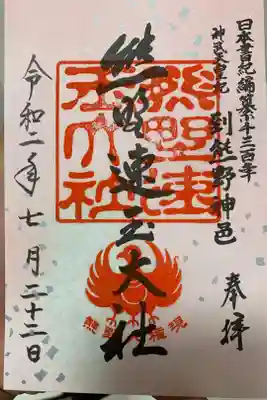 日本書紀編纂千三百年
神武天皇 到熊野神邑
奉拝
熊野速玉大社
熊野速玉大社
熊野権現
令和二年七月二十二日